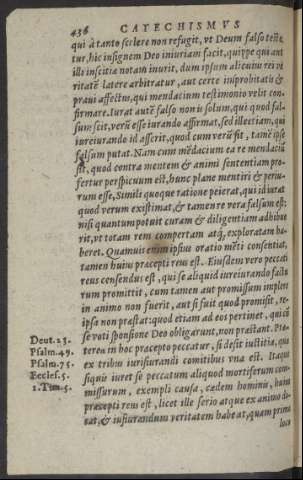 436 CATECHISMVS
qui à tanto scelere non refugit, vt Deum falso teste-
tur, hic insignem Deo iniuriam facit, quippe qui aut
ille inscitiæ notam inurit, dum ipsum alicuius rei ve
ritatē latere arbitratur, aut certe improbitatis &
praui affectus, qui mendacium testimonio velit con-
firmare. Iurat autē falso non is solum, qui quod fal-
sum scit, verū esse iurando affirmat, sed ill etiam, qui
iureiurando id asserit, quod cum verū sit, tamē ipse
falsum putat. Nam cum mēdacium ea re mendaciū
sit, quod contra mentem & animi sententiam pro-
fertur perspicuum est, hunc plane mentiri & periu-
rum esse, Simili quoque ratione peierat, qui id iurat
quod verum existimat, & tamen re vera falsum est:
nisi quantum potuit curam & diligentiam adhibue
rit, vt totam rem compertam atq, exploratam ha-
beret. Quamuis enim ipsius oratio mēti consentiat,
tamen huius præcepti reus est. Eiusdem vero peccati
reus censendus est, qui se aliquid iureiurando factu
rum promittit, cum tamen aut promissum implere
in animo non fuerit, aut si fuit quod promisit, re-
ipsa non præstat: quod etiam ad eos pertinet, qui cū
se voti sponsione Deo obligarunt, non præstant. Præ
Deut. 23.
terea in hoc præcepto peccatur, si desit iustitia, quæ
Psalm. 49.
ex tribus iurisiurandi comitibus vna est. Itaque
Psalm. 75.
siquis iuret se peccatum aliquod mortiferum com-
Eccles. 5.
missurum, exempli causa, cædem hominis, huius
1. Tim. 5.
præcepti reus est, licet ille serio atque ex animo di-
cat, & iusiurandum veritatem habeat, quam primo
loco